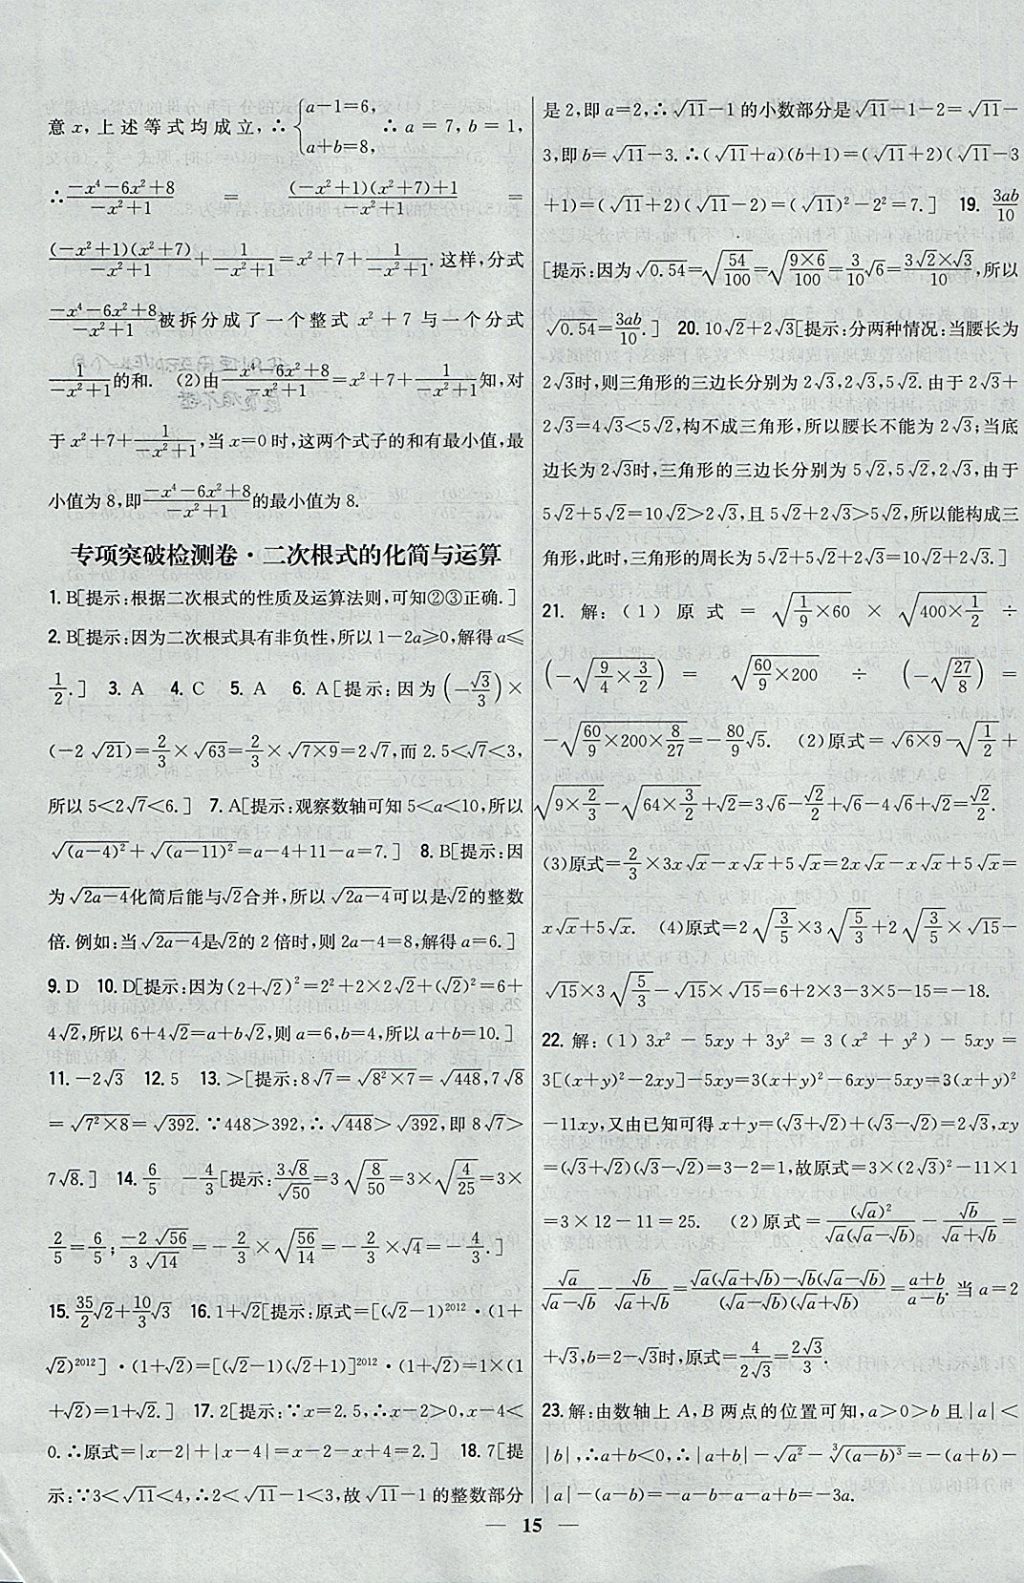 意x,上述等式均成立,∴{a−1=6, a+b=8, ∴a=7,b=1,
∴(−x⁴−6x²+8)/(−x²+1) = ((−x²+1)(x²+7)+1)/(−x²+1) =
((−x²+1)(x²+7))/(−x²+1)+1/(−x²+1)=x²+7+1/(−x²+1).这样,分式
(−x⁴−6x²+8)/(−x²+1)被拆分成了一个整式x²+7与一个分式
1/(−x²+1)的和. (2)由(−x⁴−6x²+8)/(−x²+1)=x²+7+1/(−x²+1)知,对
于x²+7+1/(−x²+1),当x=0时,这两个式子的和有最小值,最
小值为8,即(−x⁴−6x²+8)/(−x²+1)的最小值为8.
专项突破检测卷·二次根式的化简与运算
1. B[提示:根据二次根式的性质及运算法则,可知②③正确.]
2. B[提示:因为二次根式具有非负性,所以1−2a≥0,解得a≤
1/2.] 3. A 4. C 5. A 6. A[提示:因为(−√3/3)×
(−2√21)=2/3×√63=2/3×√(7×9)=2√7,而2.5<√7<3,
所以5<2√7<6.] 7. A[提示:观察数轴可知5<a<10,所以
√((a−4)²)+√((a−11)²)=a−4+11−a=7.] 8. B[提示:因
为√(2a−4)化简后能与√2合并,所以√(2a−4)可以是√2的整数
倍.例如:当√(2a−4)是√2的2倍时,则2a−4=8,解得a=6.]
9. D 10. D[提示:因为(2+√2)²=2²+2×2√2+(√2)²=6+
4√2,所以6+4√2=a+b√2,则a=6,b=4,所以a+b=10.]
11. −2√3 12. 5 13. >[提示:8√7=√(8²×7)=√448,7√8
=√(7²×8)=√392.∵448>392,∴√448>√392,即8√7>
7√8.] 14. 6/5 −4/3[提示:3√8/√50=3√(8/50)=3×√(4/25)=3×
2/5=6/5;(−2√56)/(3√14)=−2/3×√(56/14)=−2/3×√4=−4/3.]
15. 35/2√2+10/3√3 16. 1+√2[提示:原式=[(√2−1)²⁰¹²·(1+
√2)²⁰¹²]·(1+√2)=[(√2−1)(√2+1)]²⁰¹²·(1+√2)=1×(1
+√2)=1+√2.] 17. 2[提示:∵x=2.5,∴x−2>0,x−4<
0.∴原式=|x−2|+|x−4|=x−2−x+4=2.] 18. 7[提
示:∵3<√11<4,∴2<√11−1<3,故√11−1的整数部分
是2,即a=2,∴√11−1的小数部分是√11−1−2=√11−
3,即b=√11−3.∴(√11+a)(b+1)=(√11+2)(√11−3
+1)=(√11+2)(√11−2)=(√11)²−2²=7.] 19. 3ab/10
[提示:因为√0.54=√(54/100)=√((9×6)/100)=3/10√6=(3√2×√3)/10,所以
√0.54=3ab/10.] 20. 10√2+2√3[提示:分两种情况:当腰长为
2√3时,则三角形的三边长分别为2√3,2√3,5√2.由于2√3+
2√3=4√3<5√2,构不成三角形,所以腰长不能为2√3;当底
边长为2√3时,三角形的三边长分别为5√2,5√2,2√3,由于
5√2+5√2=10√2>2√3,且5√2+2√3>5√2,所以能构成三
角形,此时,三角形的周长为5√2+5√2+2√3=10√2+2√3.]
21. 解:(1)原式=√(1/9×60)×√(400×1/2)÷
(−√(9/4×3/2))=√(60/9×200)÷(−√(27/8))=
−√(60/9×200×8/27)=−80/9√5. (2)原式=√(6×9)−√(1/2)+
√(9×2/3)−√(64×3/2)+√2=3√6−√2/2+√6−4√6+√2=√2/2.
(3)原式=2/3×3x√x−x√x+5√x=2x√x−x√x+5√x=
x√x+5√x. (4)原式=2√(3/5)×3√(5/3)+2√(3/5)×√15−
√15×3√(5/3)−√15×√15=6+2×3−3×5−15=−18.
22. 解:(1)3x²−5xy+3y²=3(x²+y²)−5xy=
3[(x+y)²−2xy]−5xy=3(x+y)²−6xy−5xy=3(x+y)²
−11xy,又由已知可得x+y=(√3+√2)+(√3−√2)=2√3,xy
=(√3+√2)(√3−√2)=3−2=1,故原式=3×(2√3)²−11×1
=3×12−11=25. (2)原式=(√a)²/(√a(√a−√b))−√b/(√a+√b)=
√a/(√a−√b)−√b/(√a+√b)=(√a(√a+√b)−√b(√a−√b))/((√a−√b)(√a+√b))=(a+b)/(a−b).当a=2
+√3,b=2−√3时,原式=4/(2√3)=2√3/3.
23. 解:由数轴上A,B两点的位置可知,a>0>b且|a|<
|b|,∴a+b<0,∴|a+b|−√(a²)−∛((a−b)³)=−(a+b)−
|a|−(a−b)=−a−b−a−a+b=−3a.
— 15 —